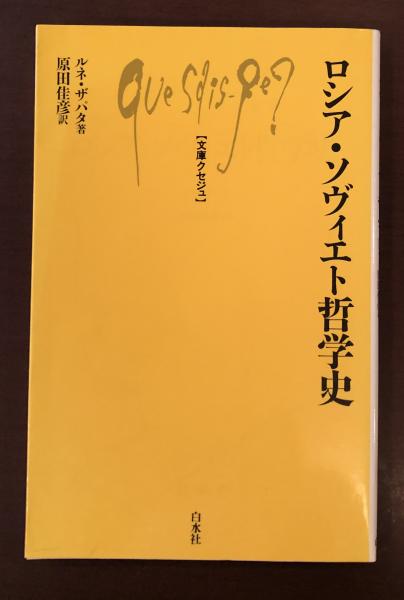 ロシア・ソヴィエト哲学史
Que sais-je?
【文庫クセジュ】
ルネ・ザパタ著
原田佳彦訳
白水社